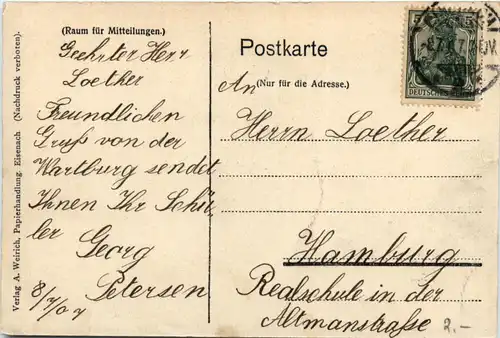 (Raum für Mitteilungen.)
Geehrter Herr
Loether
Freundlichen
Gruß von der
Wartburg sendet
Ihnen Ihr Schü-
ler Georg
Petersen
8/7/07
Postkarte
(Nur für die Adresse.)
An
Herrn Loether
Hamburg
Realschule in der
Altmanstraße
2.-
5
DEUTSCHES REICH
Verlag A. Weirich, Papierhandlung, Eisenach (Nachdruck verboten).